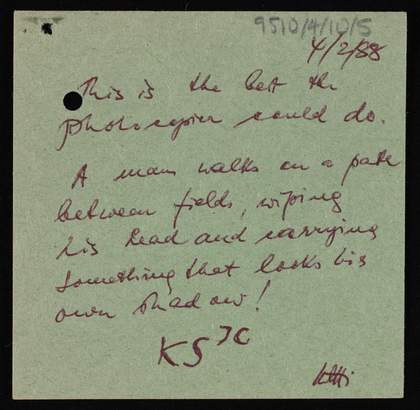 9510/4/10/5
4/2/88
This is the best the
photocopier could do.
A man walks on a path
between fields, wiping
his head and carrying
something that looks his
own shadow!
KS